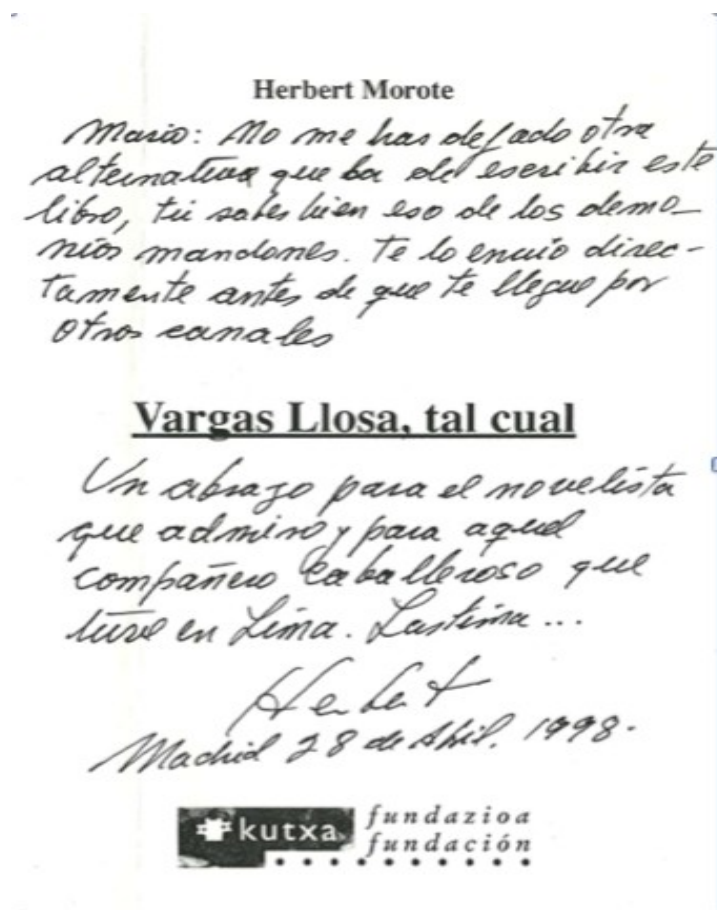 Herbert Morote
Mario: No me has dejado otra
alternativa que la de escribir este
libro, tú sabes bien eso de los demo-
nios mandones. Te lo envío direc-
tamente antes de que te llegue por
otros canales
Vargas Llosa, tal cual
Un abrazo para el novelista
que admiro y para aquel
compañero caballeroso que
tuve en Lima. Lástima...
Herbert
Madrid 28 de Abril. 1998.
kutxa fundazioa
fundación